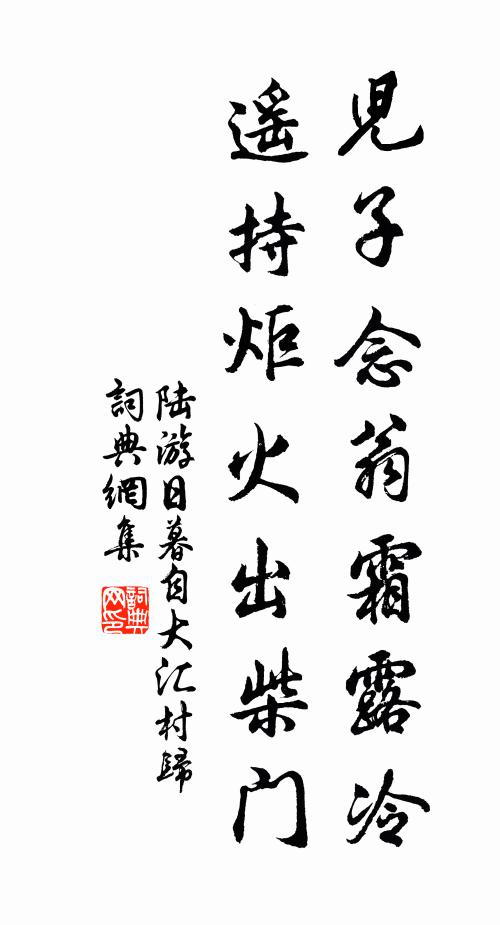 兒子念翁霜露冷
遥持炬火出柴门
陆游日暮自大汇村歸
詞典網集
詞典
网印